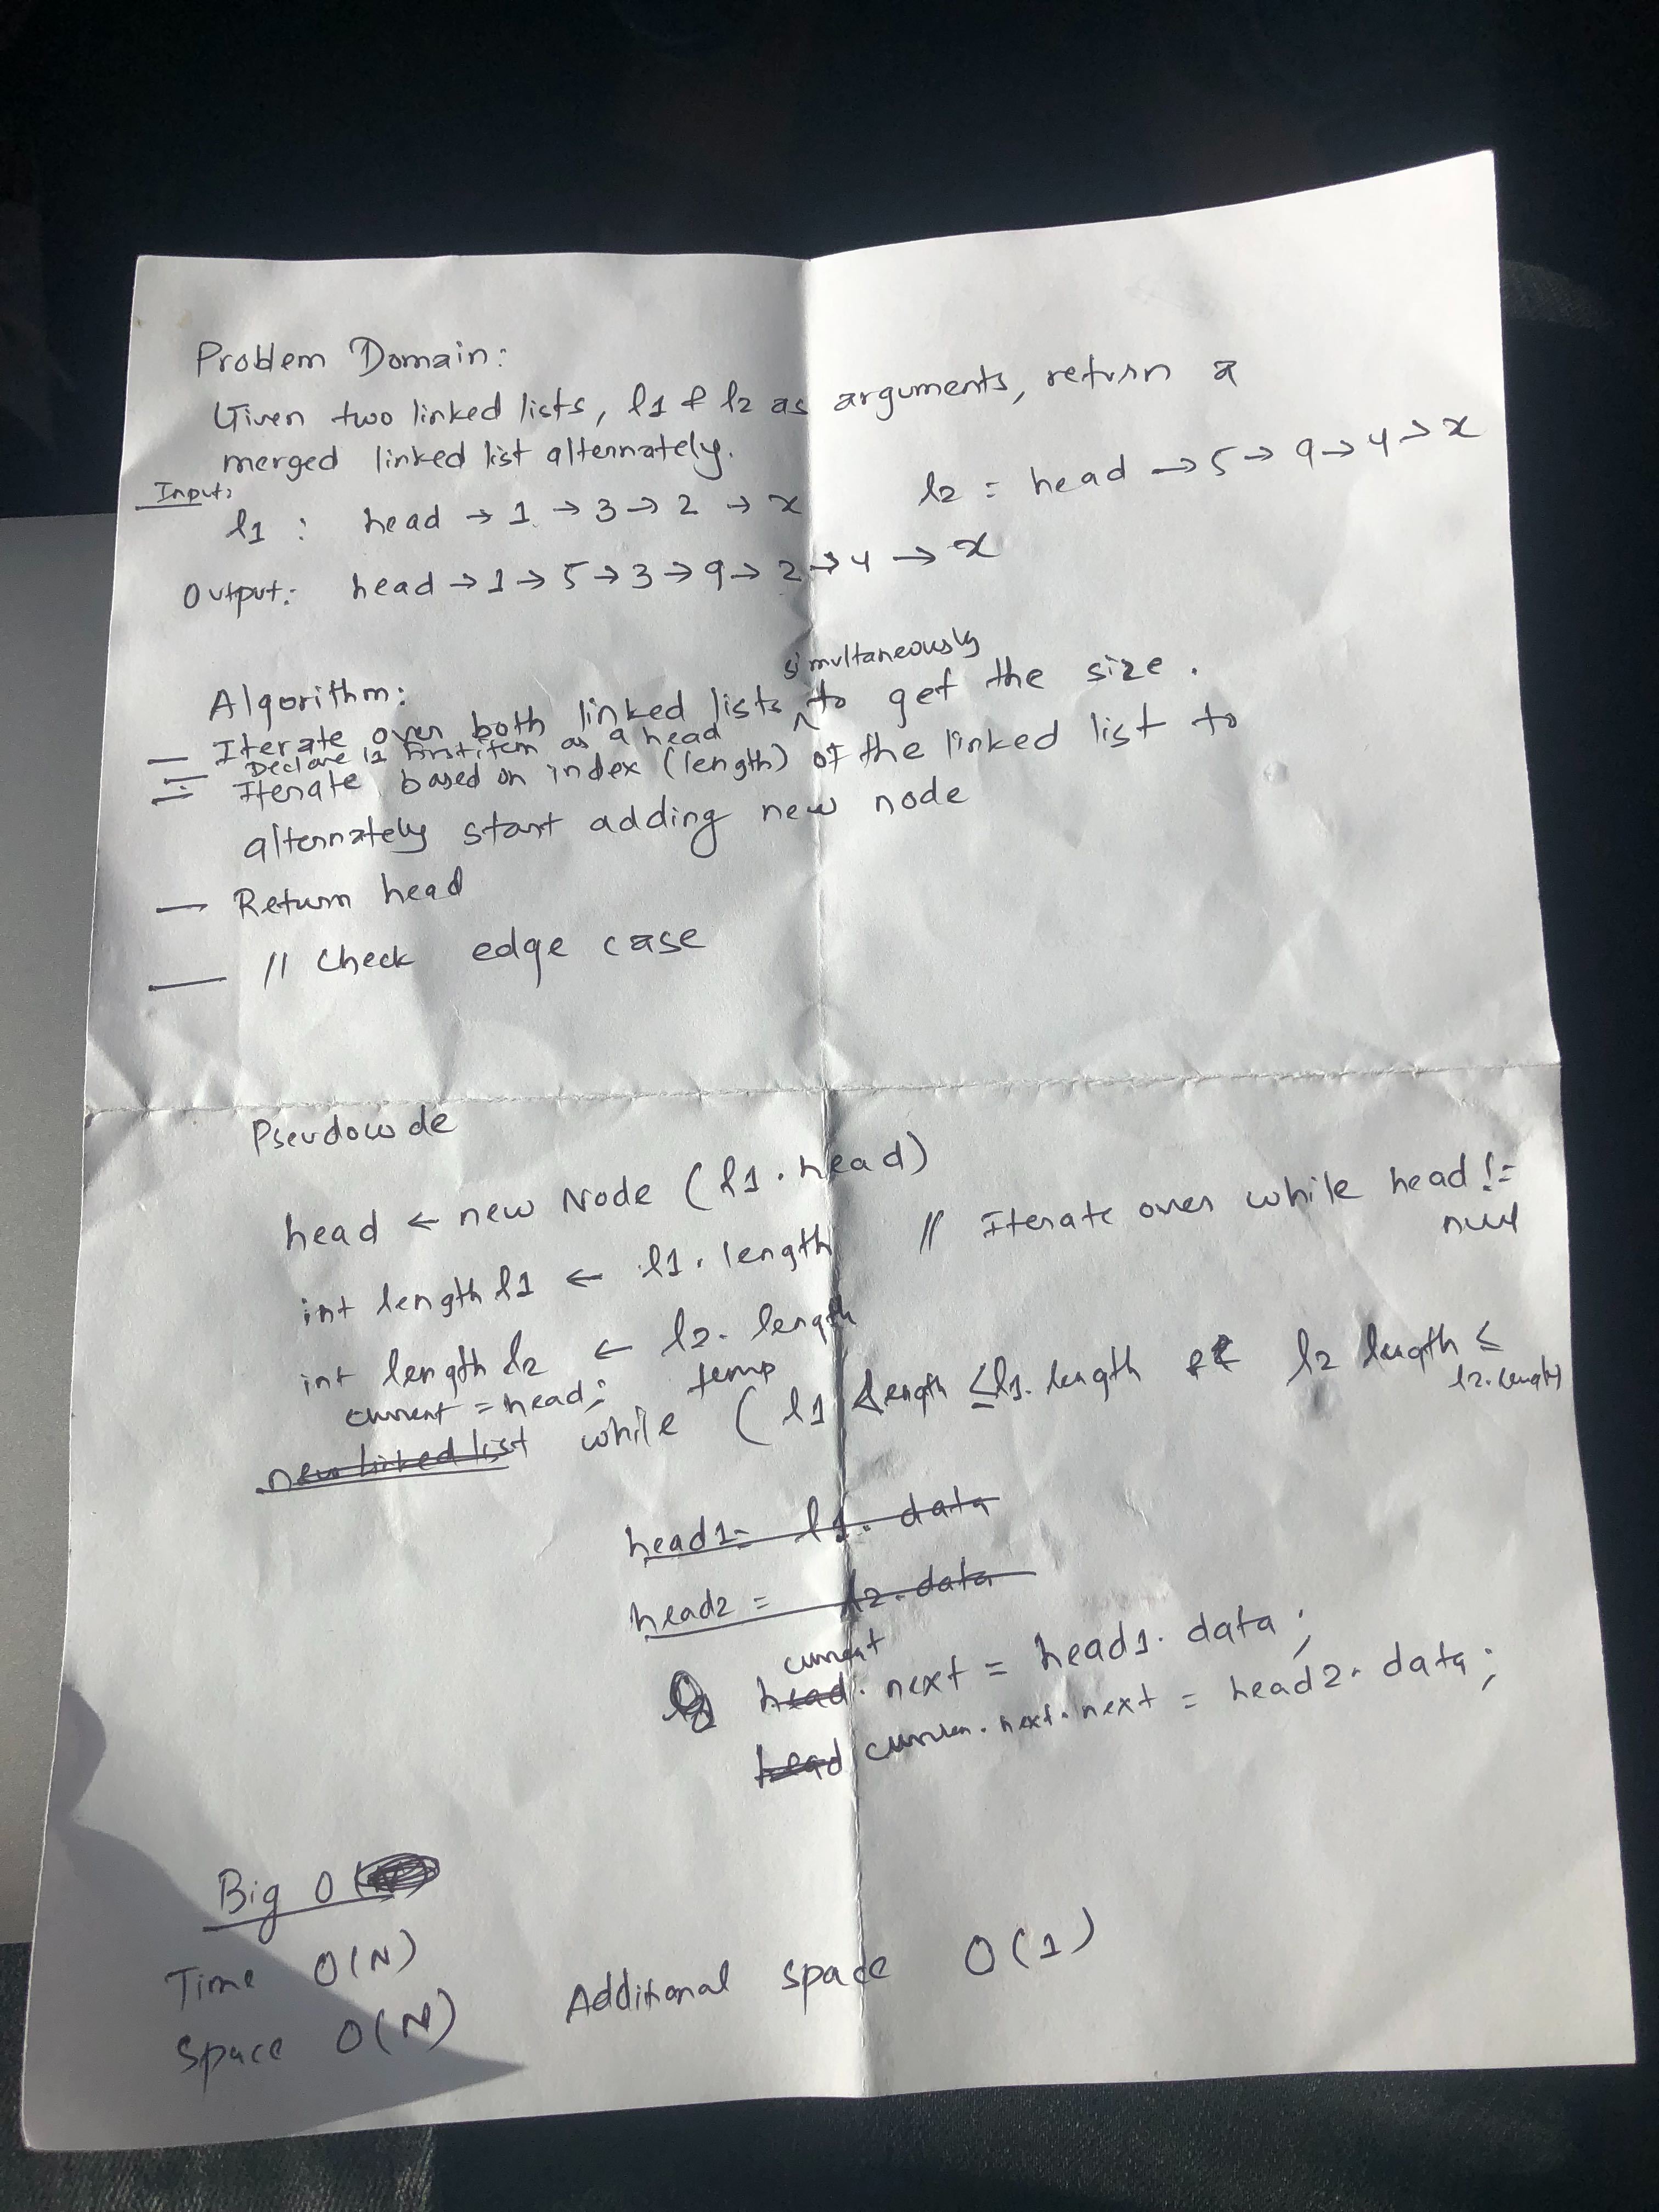 Problem Domain:
Given two linked lists, l1 & l2 as arguments, return a
merged linked list alternately.
Input:
l1 : head → 1 → 3 → 2 → x
l2 = head → 5 → 9 → 4 → x
Output: head → 1 → 5 → 3 → 9 → 2 → 4 → x
Algorithm:
simultaneously
— Iterate over both linked lists ^ to get the size.
— Declare l1 first item as a head
— Iterate based on index (length) of the linked list to
alternately start adding new node
— Return head
— // Check edge case
Pseudocode
head ← new Node (l1.head)
int length l1 ← l1.length // Iterate over while head !=
null
int length l2 ← l2.length
current = head; temp
new linked list while (l1 length ≤ l1.length l2 length ≤
l2.length)
head1 = l1.data
head2 = l2.data
current
head.next = head1.data;
head curren.next.next = head2.data;
Big O
Time O(N)
Space O(N) Additional space O(1)